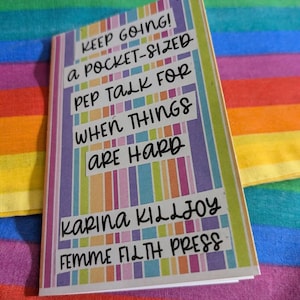 KEEP GOING!
A POCKET-SIZED
PEP TALK FOR
WHEN THINGS
ARE HARD
KARINA KILLJOY
FEMME FILTH PRESS